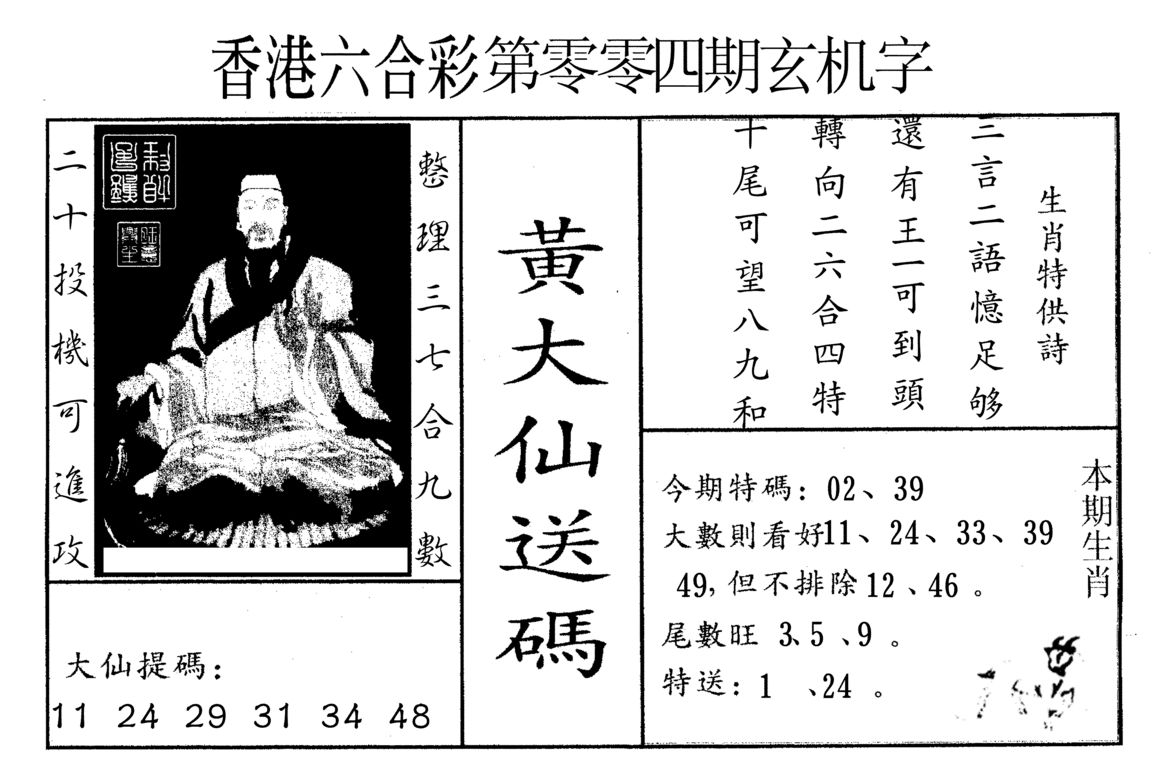 香港六合彩第零零四期玄机字
整理三七合九數
二十投機可進攻
大仙提碼：
11 24 29 31 34 48
黃大仙送碼
生肖特供詩
三言二語憶足够
還有王一可到頭
轉向二六合四特
十尾可望八九和
本期生肖
今期特碼：02、39
大數則看好11、24、33、39
49，但不排除12、46。
尾數旺 3、5、9。
特送：1、24。